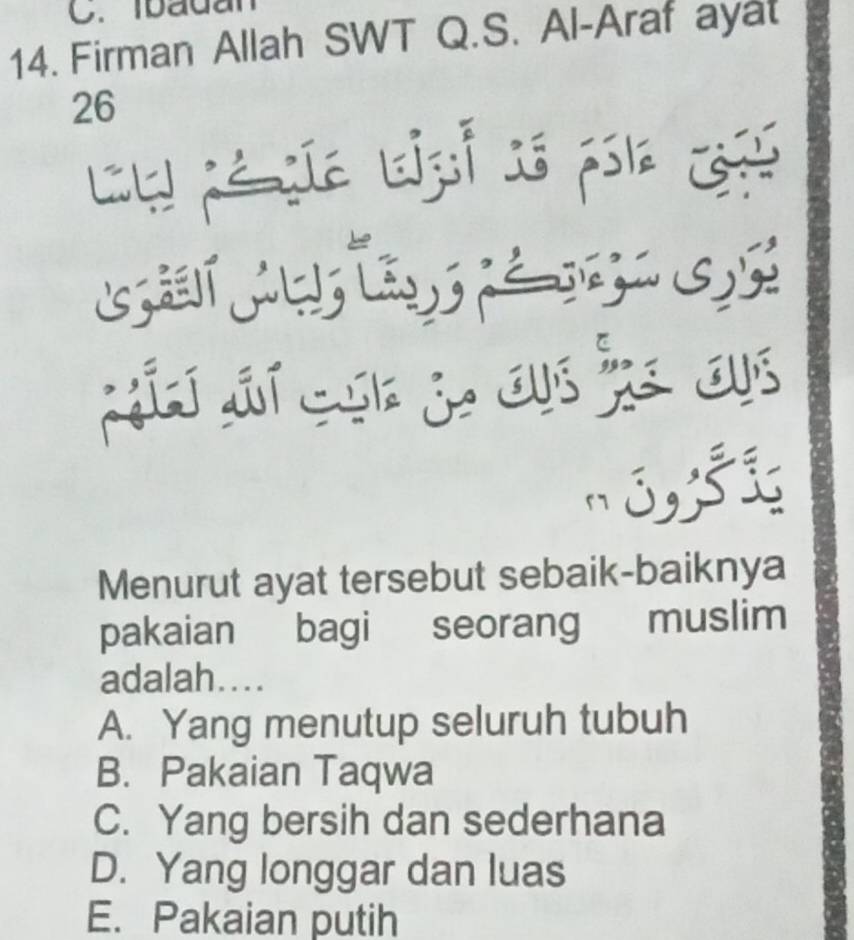 C. Ibadah
14. Firman Allah SWT Q.S. Al-Araf ayat
26
يَٰبَنِيٓ ءَادَمَ قَدۡ أَنزَلۡنَا عَلَيۡكُمۡ لِبَاسٗا
يُوَٰرِي سَوۡءَٰتِكُمۡ وَرِيشٗاۖ وَلِبَاسُ ٱلتَّقۡوَىٰ
ذَٰلِكَ خَيۡرٞۚ ذَٰلِكَ مِنۡ ءَايَٰتِ ٱللَّهِ لَعَلَّهُمۡ
يَذَّكَّرُونَ ٢٦
Menurut ayat tersebut sebaik-baiknya
pakaian bagi seorang muslim
adalah....
A. Yang menutup seluruh tubuh
B. Pakaian Taqwa
C. Yang bersih dan sederhana
D. Yang longgar dan luas
E. Pakaian putih